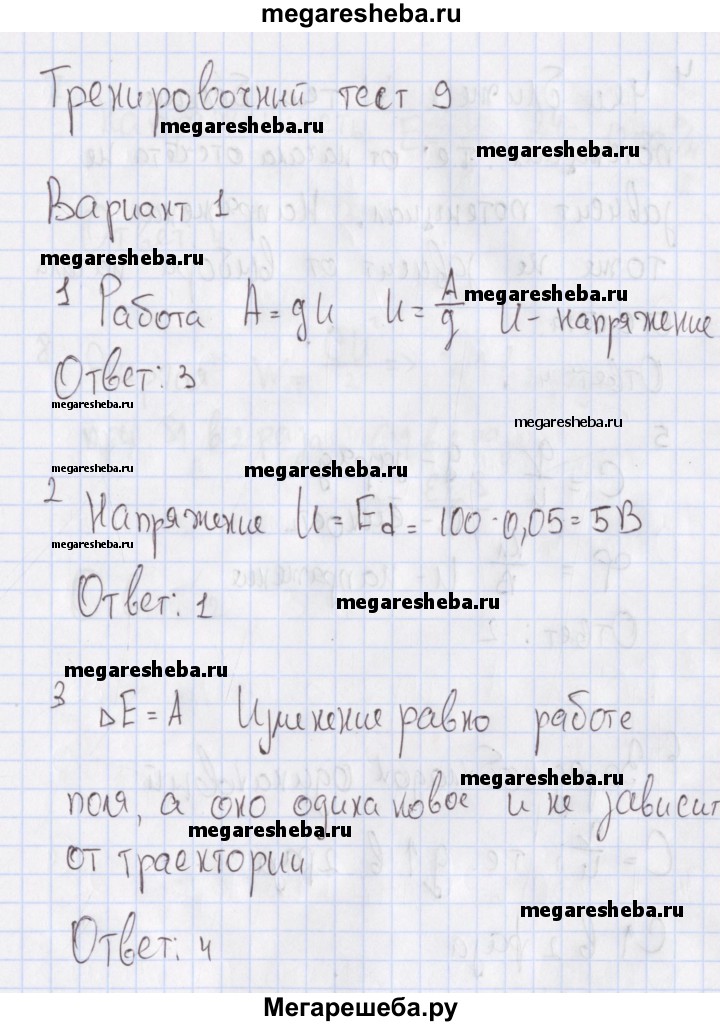 megaresheba.ru
Тренировочный тест 9
megaresheba.ru
megaresheba.ru
Вариант 1
megaresheba.ru
1 Работа A = qU U = A/q U - напряжение
megaresheba.ru
Ответ: 3
megaresheba.ru
megaresheba.ru
megaresheba.ru
megaresheba.ru
2 Напряжение U = Ed = 100 · 0,05 = 5 В
megaresheba.ru
Ответ: 1
megaresheba.ru
megaresheba.ru
3 ΔE = A Изменение равно работе
megaresheba.ru
поля, а оно одинаковое и не зависит
megaresheba.ru
от траектории
megaresheba.ru
Ответ: 4
Мегарешеба.ру